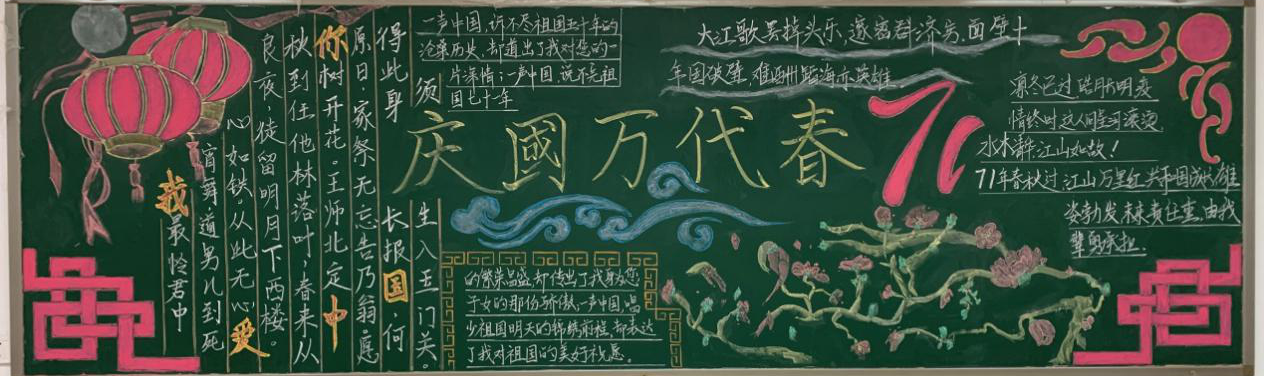 我最怜君中
宵舞道男儿到死
心如铁。从此无心爱
良夜,徒留明月下西楼。
秋到任他林落叶,春来从
你树开花。王师北定中
原日,家祭无忘告乃翁。愿
得此身长报国,何
须生入玉门关。
一声中国,诉不尽祖国五十年的
沧桑历史,却道出了我对您的一
片深情;一声中国,说不完祖
国七十年
的繁荣昌盛,却传出了我身为您
子女的那份骄傲,一声中国,唱
少祖国明天的锦绣前程,却表达
了我对祖国的美好祝愿。
庆國万代春
71
大江歌罢掉头东,邃密群济穷,面壁十
年图破壁,难酬蹈海亦英雄
凛冬已过皓月长明疫
情终时这人间笙歌滚烫
水木清华,江山如故!
71年春秋过,江山万里红,共和国成长雄
姿勃发,未来责任重,由我
辈勇承担.